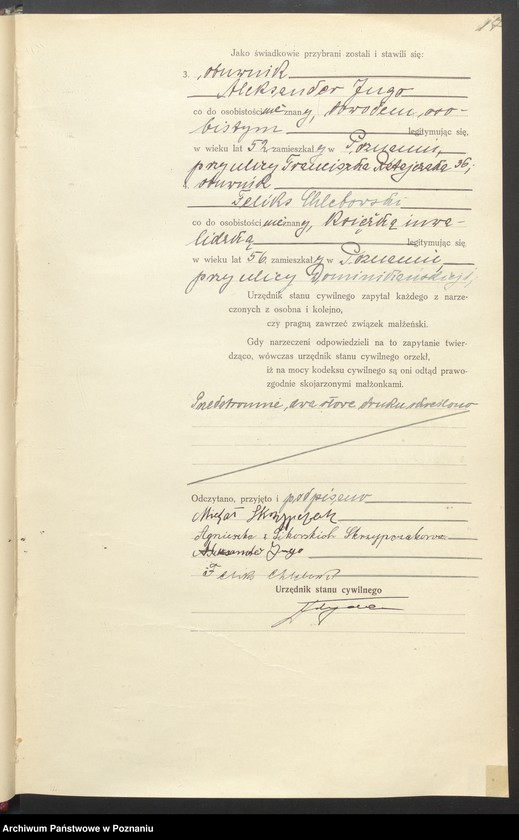 17
Jako świadkowie przybrani zostali i stawili się:
3. obuwnik
Aleksander Jugo
co do osobistości nieznany, dowodem oso-
bistym legitymując się,
w wieku lat 52 zamieszkały w Poznaniu,
przy ulicy Franciszka Ratajczaka 36;
obuwnik
Feliks Chlebowski
co do osobistości nieznany, książką inwa-
lidzką legitymując się
w wieku lat 56 zamieszkały w Poznaniu,
przy ulicy Dominikańskiej
Urzędnik stanu cywilnego zapytał każdego z narze-
czonych z osobna i kolejno,
czy pragną zawrzeć związek małżeński.
Gdy narzeczeni odpowiedzieli na to zapytanie twier-
dząco, wówczas urzędnik stanu cywilnego orzekł,
iż na mocy kodeksu cywilnego są oni odtąd prawo-
zgodnie skojarzonymi małżonkami.
Przedstronnie, dwa słowa druku skreślono
Odczytano, przyjęto i podpisano
Michał Skrzypczak
Agnieszka z Sikorskich Skrzypczakowa
Aleksander Jugo
Feliks Chlebowski
Urzędnik stanu cywilnego
Archiwum Państwowe w Poznaniu